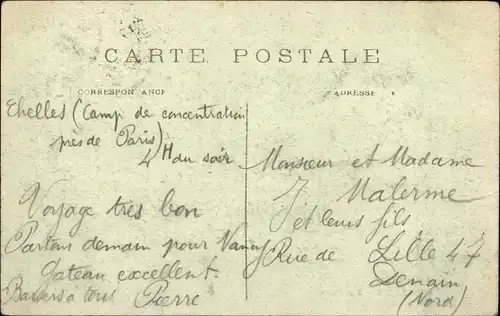 CARTE POSTALE
CORRESPONDANCE
ADRESSE
Chelles (Camp de concentration
près de Paris)
4H du soir
Voyage très bon
Partons demain pour Nancy
Gateau excellent
Baisers à tous
Pierre
Monsieur et Madame
J Malerme
et leurs fils
Rue de Lille 47
Denain
(Nord)